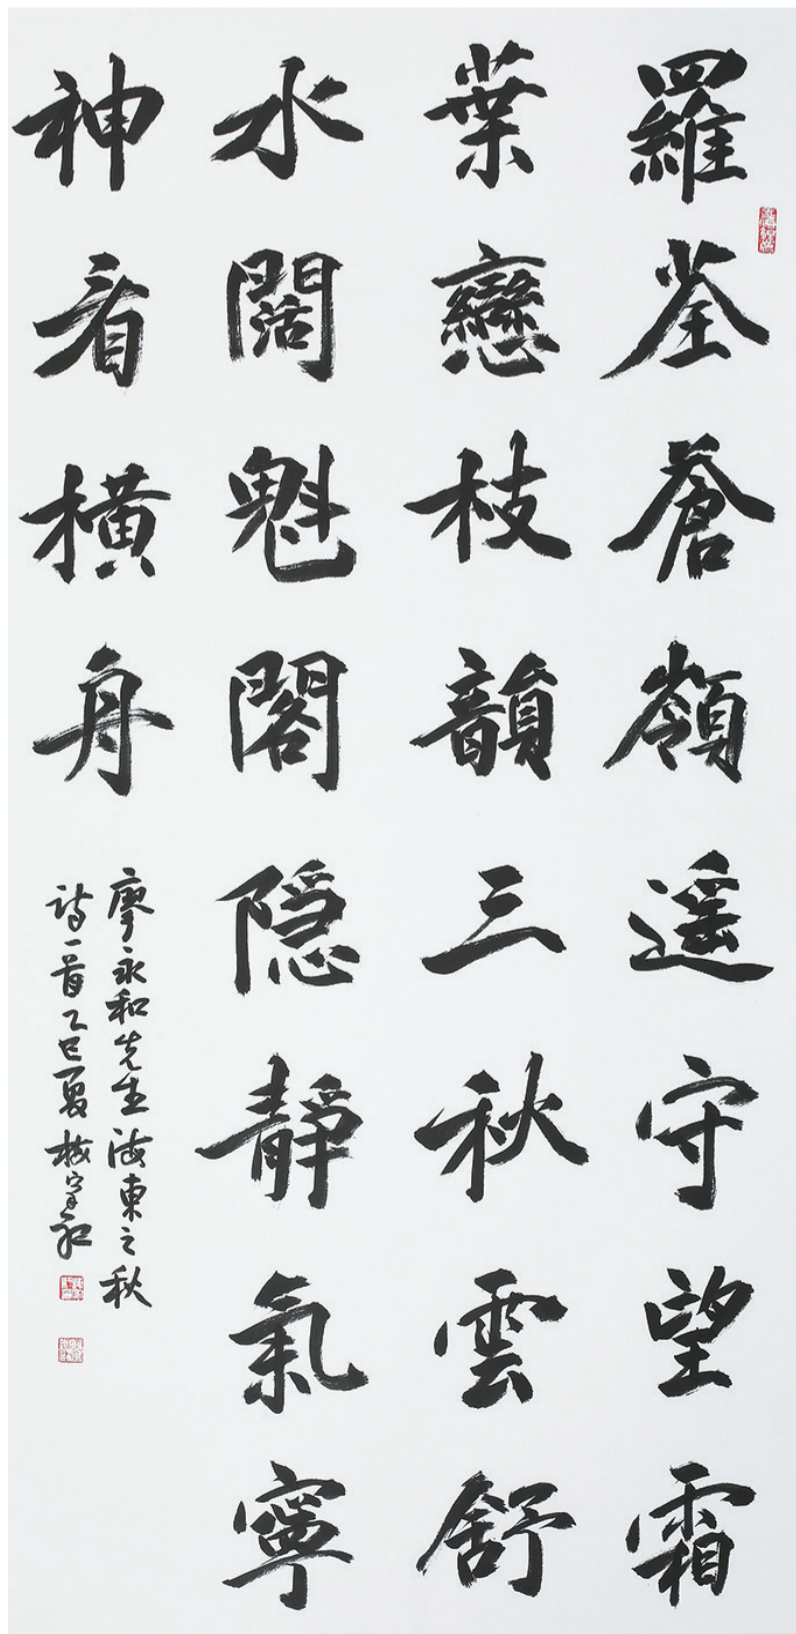 羅荃蒼嶺遥守望霜
葉戀枝韻三秋雲舒
水闊魁閣隐靜氣寧
神看橫舟
廖永和先生海東之秋
詩一首乙巳夏